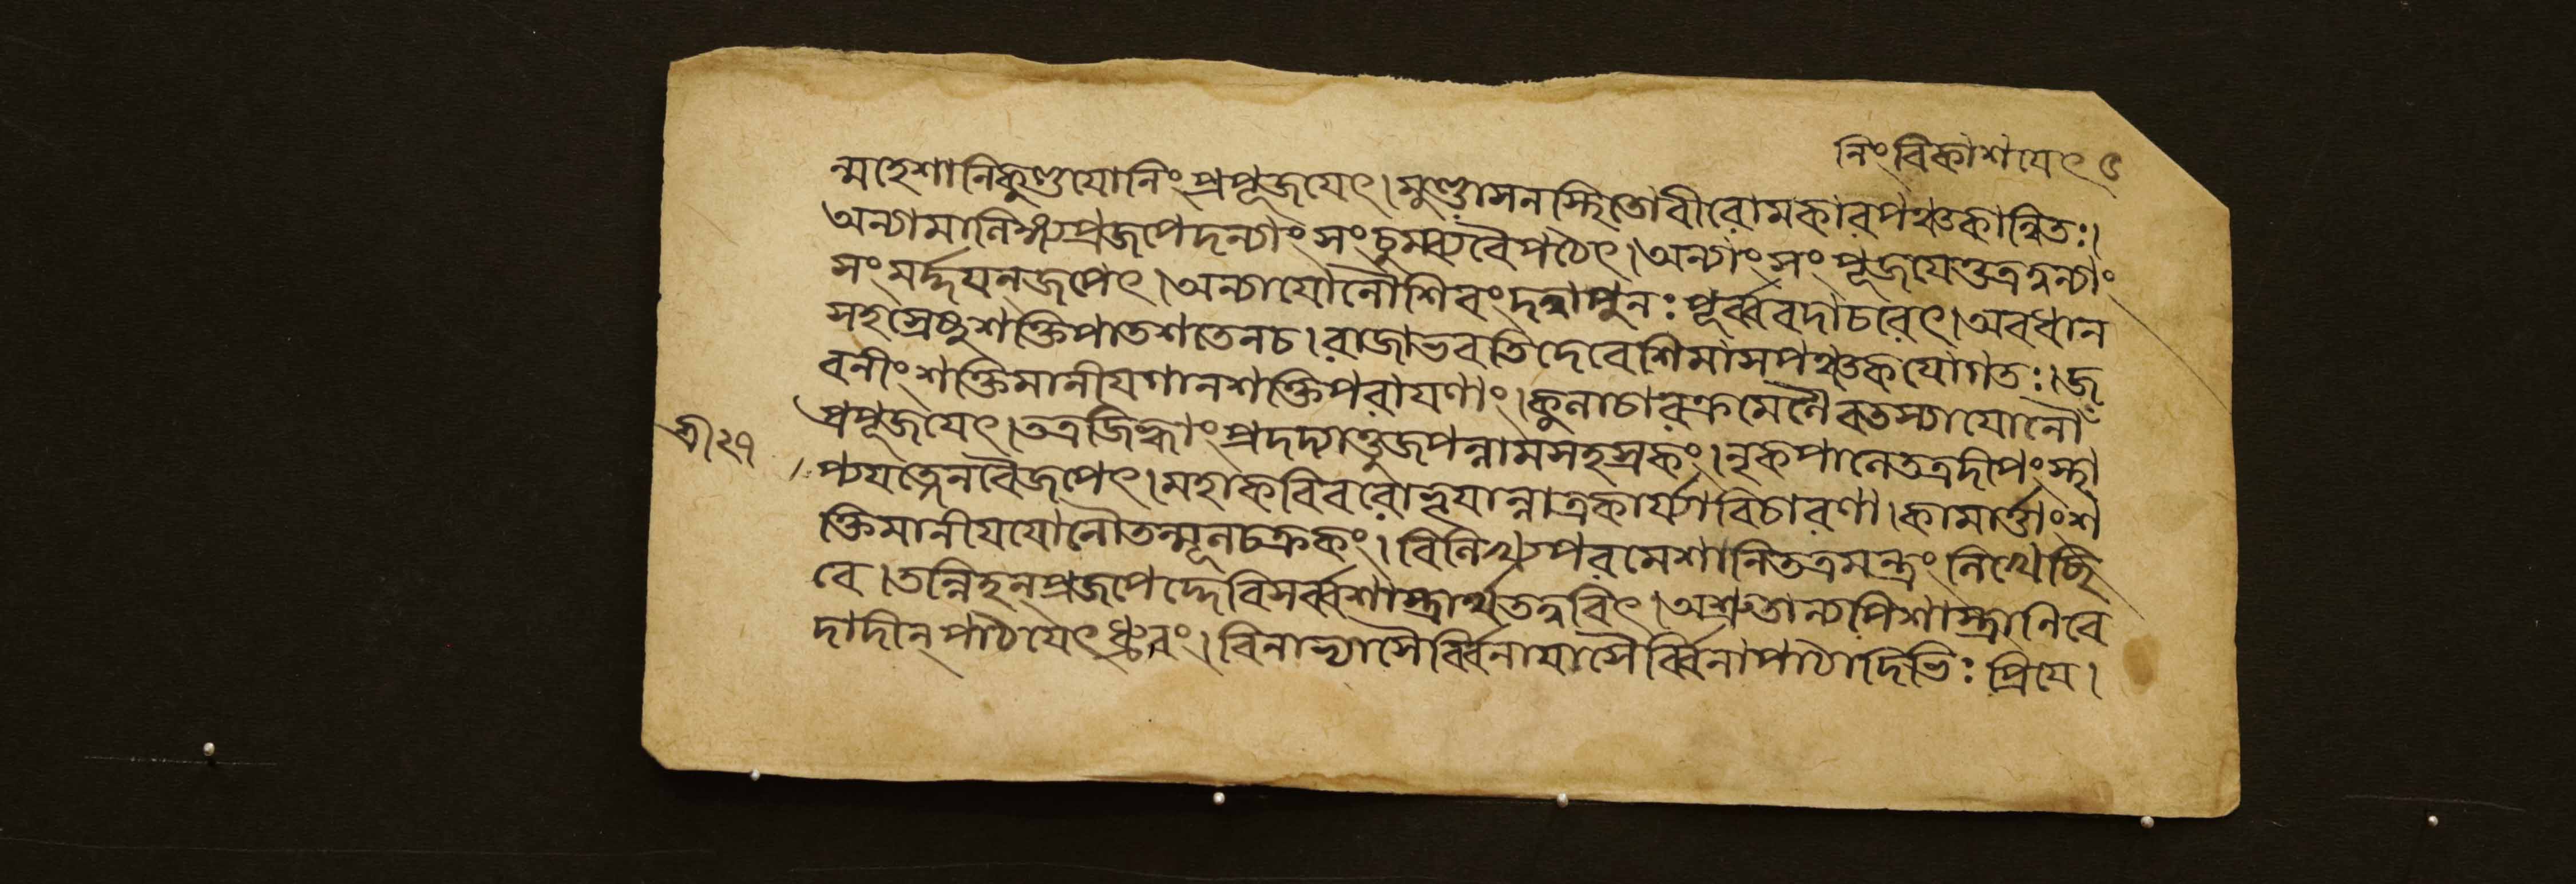 নিং বিকাশয়েৎ ৫
ন্মহেশানিকুণ্ডযোনিং প্রপূজয়েৎ। মুণ্ডাসনস্থিতোবীরোমকারপঞ্চকান্বিতঃ।
অন্যামালিঙ্গ্যপ্রজপেদন্যাং সংচুম্ব্যবৈপঠেৎ। অন্যাং সংপূজয়েত্তত্রত্বন্যাং
সংমর্দ্দয়ন্জপেৎ। অন্যাযোনৌশিবং দত্ত্বাপুনঃ পূর্ব্ববদাচরেৎ। অবধান
সহস্রেষুশক্তিপাতশতেনচ। রাজাভবতিদেবেশিমাসপঞ্চকযোগতঃ। জ
বনীংশক্তিমানীয়গানশক্তিপরায়ণাং। কুলাচারক্রমেণৈবতস্যাযোনৌং
প্রপূজয়েৎ। তত্রজিহ্বাং প্রদদ্যাত্তুজপন্নামসহস্রকং। নৃকপালেতত্রদীপংস্থা
প্যযত্নেনবৈজপেৎ। মহাকবিবরোভূয়ান্নাত্রকার্য্যাবিচারণা। কামার্ত্তাংশ
ক্তিমানীয়যোনৌতন্মূলচক্রকং। বিলিখ্যপরমেশানিতত্রমন্ত্রং লিখেচ্ছি
বে। তল্লিহন্প্রজপেদ্দেবিসর্ব্বশাস্ত্রার্থতত্ত্ববিৎ। অশ্রুতান্যপিশাস্ত্রানিবে
দাদীন্ পাঠয়েৎধ্রুবং। বিনাভ্যাসৈর্ব্বিনায়াসৈর্ব্বিনাপাঠাদিভিঃ প্রিয়ে।